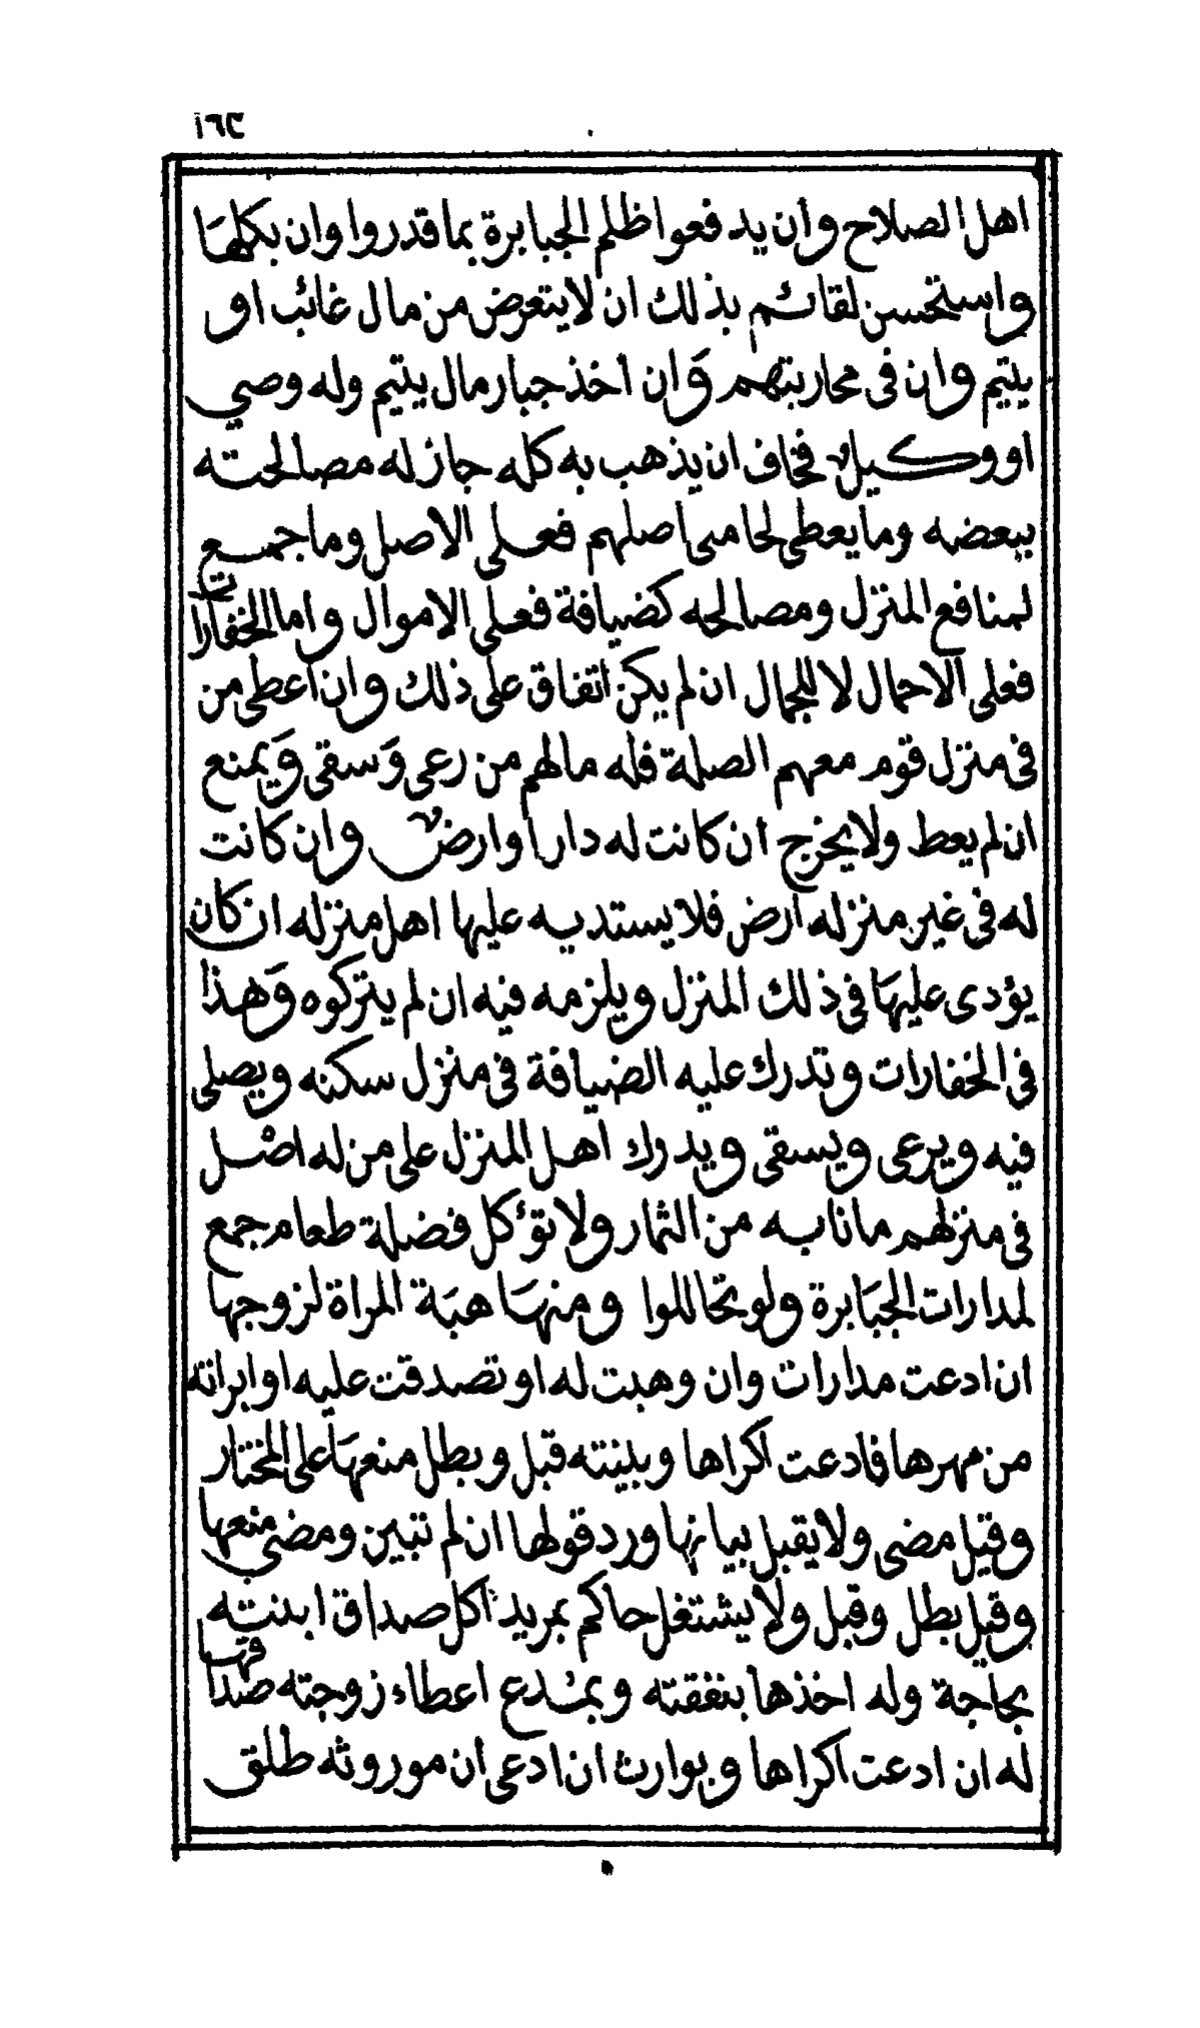 ١٦٣
اهل الصلاح وان يدفعوا ظلم الجبابرة بما قدروا وان بكلها
واستحسن لقائم بذلك ان لا يتعرض من مال غائب او
يتيم وان فى محاربتهم وان اخذ جبار مال يتيم وله وصي
او وكيل فخاف ان يذهب به كله جاز له مصالحته
ببعضه وما يعطى لحامى اصلهم فعلى الاصل وما جمع
لمنافع المنزل ومصالحه كضيافة فعلى الاموال واما الخفارات
فعلى الاحمال لا للجمال ان لم يكن اتفاق على ذلك وان اعطى من
فى منزل قوم معهم الصلة فله مالهم من رعى وسقى ويمنع
ان لم يعط ولا يخرج ان كانت له دار او ارض وان كانت
له فى غير منزله ارض فلا يستدبه عليها اهل منزله ان كان
يؤدى عليها فى ذلك المنزل ويلزمه فيه ان لم يتركوه وهذا
فى الخفارات وتدرك عليه الضيافة فى منزل سكنه ويصلى
فيه ويرعى ويسقى ويدرك اهل المنزل على من له اصل
فى منزلهم ما نابه من الثمار ولا تؤكل فضلة طعام جمع
لمدارات الجبابرة ولو تحاللوا ومنها هبة المراة لزوجها
ان ادعت مدارات وان وهبت له او تصدقت عليه او ابراته
من مهرها فادعت اكراها وبينته قبل وبطل منعها على المختار
وقيل مضى ولا يقبل بيانها ورد قولها ان لم تتبين ومضى منعها
وقيل بطل وقبل ولا يشتغل حاكم بمريد اكل صداق ابنته
بحاجة وله اخذها بنفقته وبمدع اعطاء زوجته صداقها
له ان ادعت اكراها وبوارث ان ادعى ان موروثه طلق